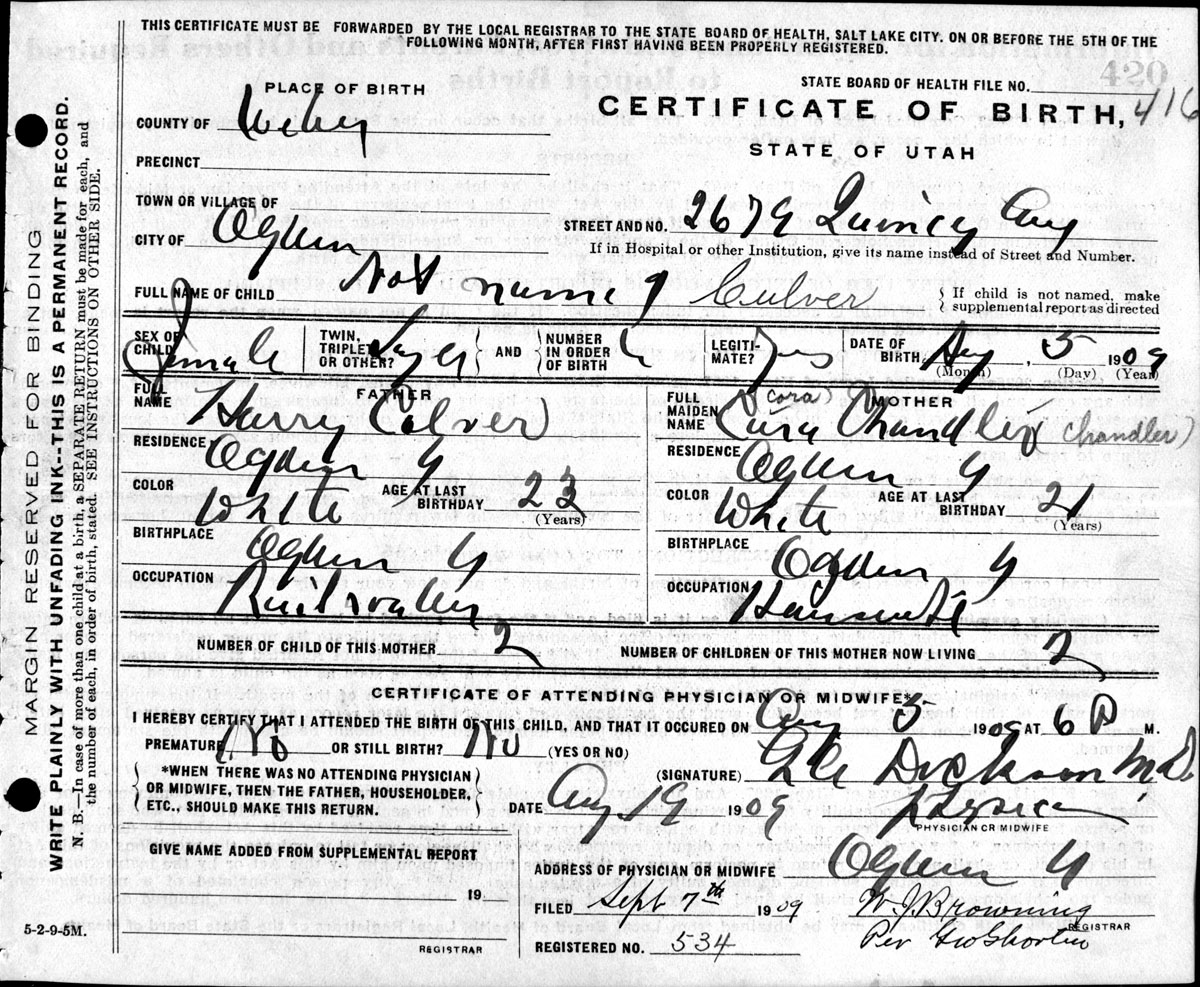 THIS CERTIFICATE MUST BE FORWARDED BY THE LOCAL REGISTRAR TO THE STATE BOARD OF HEALTH, SALT LAKE CITY, ON OR BEFORE THE 5TH OF THE
FOLLOWING MONTH, AFTER FIRST HAVING BEEN PROPERLY REGISTERED.
420
STATE BOARD OF HEALTH FILE NO.
PLACE OF BIRTH
CERTIFICATE OF BIRTH, 416
COUNTY OF Weber
STATE OF UTAH
PRECINCT
TOWN OR VILLAGE OF
CITY OF Ogden
STREET AND NO. 2679 Quincy Ave
If in Hospital or other Institution, give its name instead of Street and Number.
FULL NAME OF CHILD Not named Culver
If child is not named, make
supplemental report as directed
SEX OF CHILD Female
TWIN, TRIPLET OR OTHER?
AND
NUMBER IN ORDER OF BIRTH
LEGITI-MATE? Yes
DATE OF BIRTH Aug, 5 1909
(Month) (Day) (Year)
FATHER
FULL NAME Harry Culver
RESIDENCE Ogden U
COLOR White
AGE AT LAST BIRTHDAY 23
(Years)
BIRTHPLACE Ogden U
OCCUPATION
MOTHER
FULL MAIDEN NAME (Cora) Chandler (Chandler)
RESIDENCE Ogden U
COLOR White
AGE AT LAST BIRTHDAY 21
(Years)
BIRTHPLACE Ogden U
OCCUPATION Housewife
NUMBER OF CHILD OF THIS MOTHER 2
NUMBER OF CHILDREN OF THIS MOTHER NOW LIVING 2
CERTIFICATE OF ATTENDING PHYSICIAN OR MIDWIFE*
I HEREBY CERTIFY THAT I ATTENDED THE BIRTH OF THIS CHILD, AND THAT IT OCCURED ON Aug 5 1909 AT 6 P M.
PREMATURE No OR STILL BIRTH? No (YES OR NO)
*WHEN THERE WAS NO ATTENDING PHYSICIAN
OR MIDWIFE, THEN THE FATHER, HOUSEHOLDER,
ETC., SHOULD MAKE THIS RETURN.
(SIGNATURE) Dickson M.D.
DATE Aug 19 1909
Physician
PHYSICIAN OR MIDWIFE
GIVE NAME ADDED FROM SUPPLEMENTAL REPORT
19
REGISTRAR
ADDRESS OF PHYSICIAN OR MIDWIFE Ogden U
FILED Sept 7th 1909
W. J. Browning
REGISTRAR
Per
REGISTERED NO. 534
5-2-9-5M.
MARGIN RESERVED FOR BINDING
WRITE PLAINLY WITH UNFADING INK--THIS IS A PERMANENT RECORD.
N. B.—In case of more than one child at a birth, a SEPARATE RETURN must be made for each, and
the number of each, in order of birth, stated. SEE INSTRUCTIONS ON OTHER SIDE.